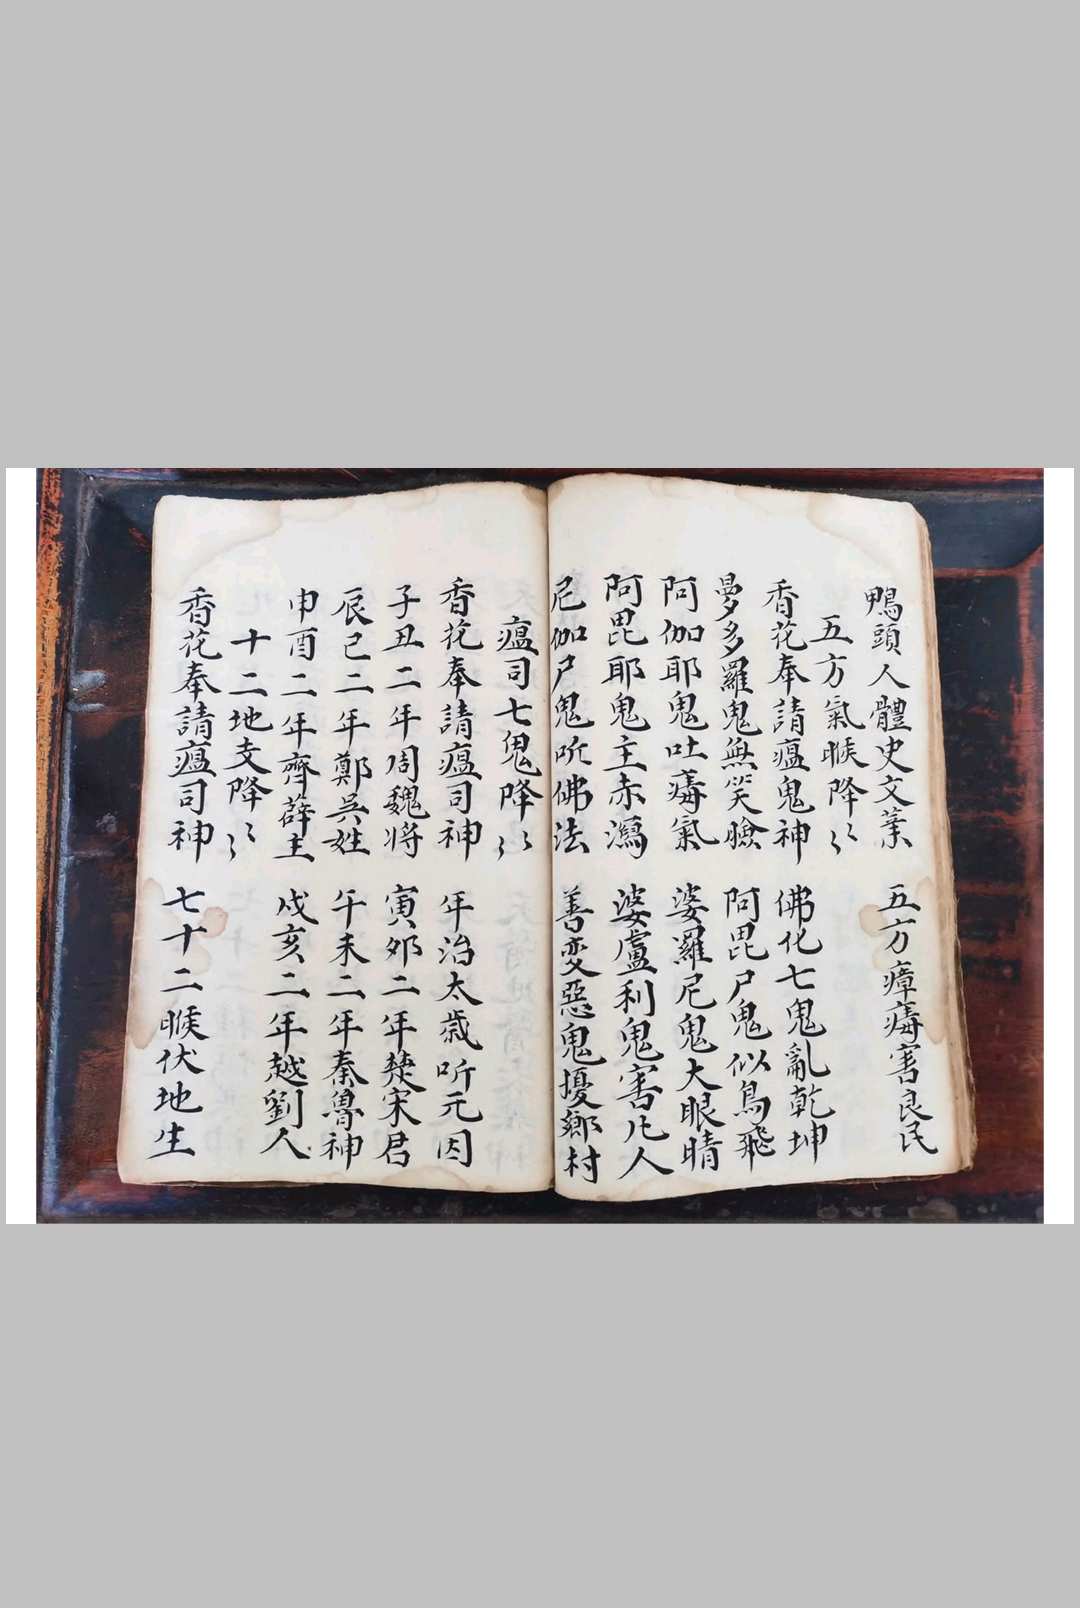 鴨頭人體史文業 五方瘴毒害良民
五方氣瞭降〻
香花奉請瘟鬼神 佛化七鬼亂乾坤
曼多羅鬼無笑臉 阿毘尸鬼似鳥飛
阿伽耶鬼吐毒氣 婆羅尼鬼大眼睛
阿毘耶鬼主赤瀉 婆盧利鬼害凡人
尼伽尸鬼听佛法 善变惡鬼擾鄉村
瘟司七鬼降〻
香花奉請瘟司神 年治太歲听元因
子丑二年周魏将 寅夘二年楚宋君
辰巳二年鄭吳姓 午未二年秦魯神
申酉二年齊薛主 戌亥二年越劉人
十二地支降〻
香花奉請瘟司神 七十二瞭伏地生